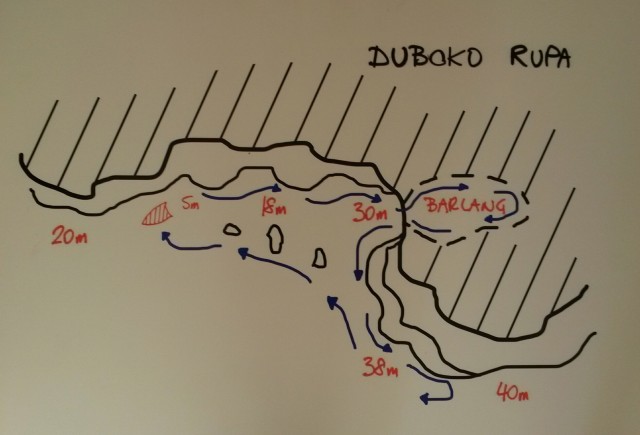 DUBOKO RUPA
BARLANG
5m
18m
30m
20m
38m
40m